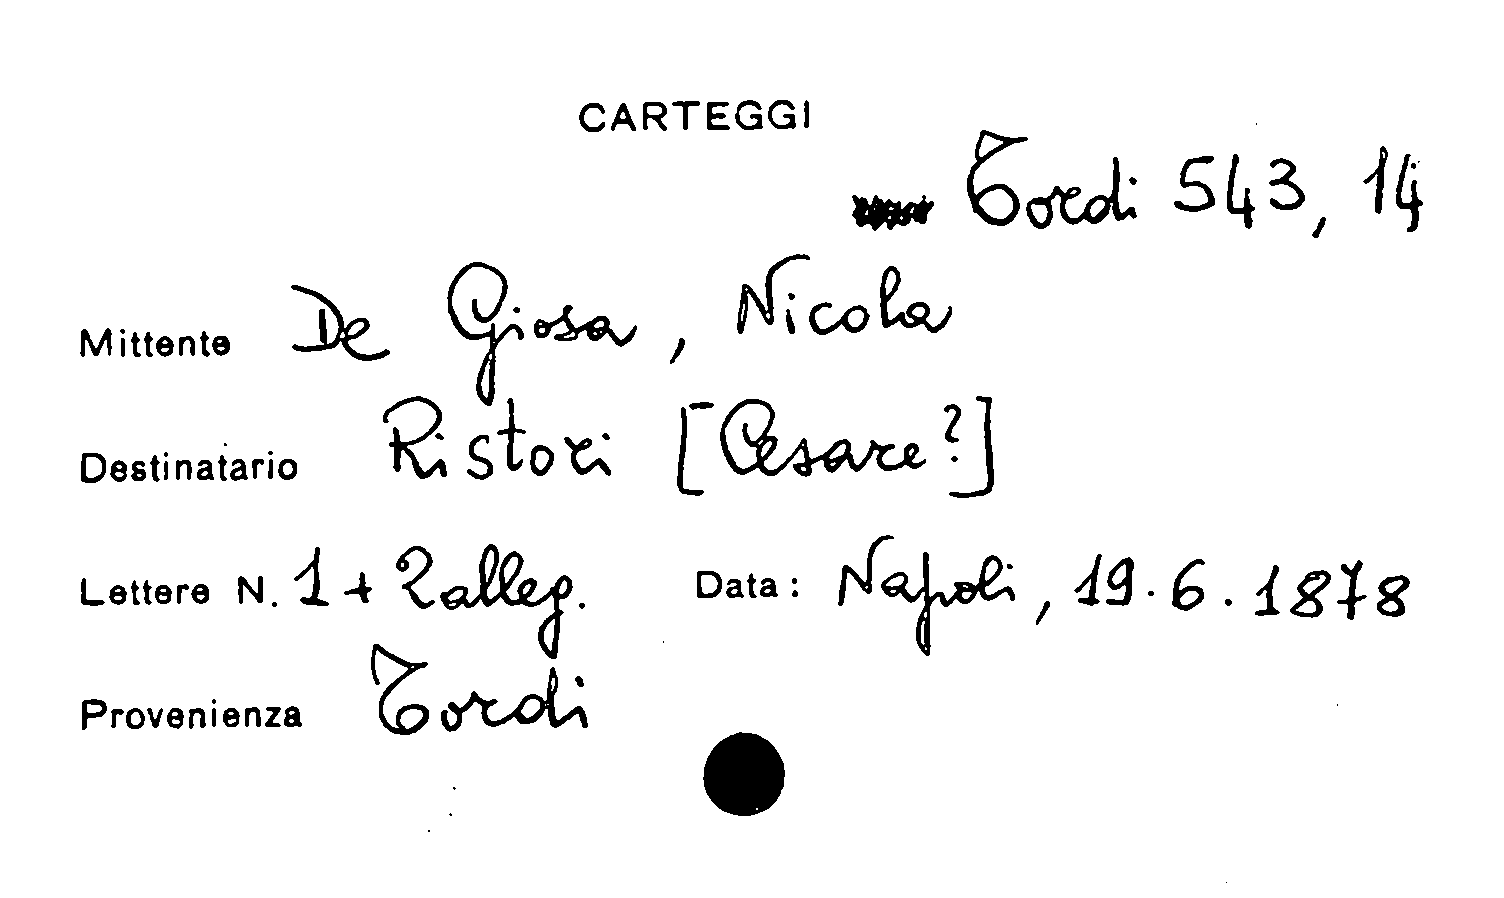 CARTEGGI
Tordi 543, 14
Mittente De Giosa, Nicola
Destinatario Ristori [Cesare?]
Lettere N. 1 + 2 alleg. Data: Napoli, 19.6.1878
Provenienza Tordi